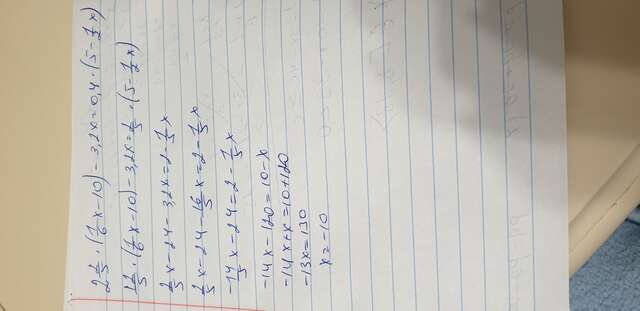 2 2/5 · (1/6 x - 10) - 3,2x = 0,4 · (5 - 1/2 x)
12/5 · (1/6 x - 10) - 3,2x = 2/5 · (5 - 1/2 x)
2/5 x - 24 - 3,2x = 2 - 1/5 x
2/5 x - 24 - 16/5 x = 2 - 1/5 x
-14/5 x - 24 = 2 - 1/5 x
-14x - 120 = 10 - x
-14x + x = 10 + 120
-13x = 130
x = -10